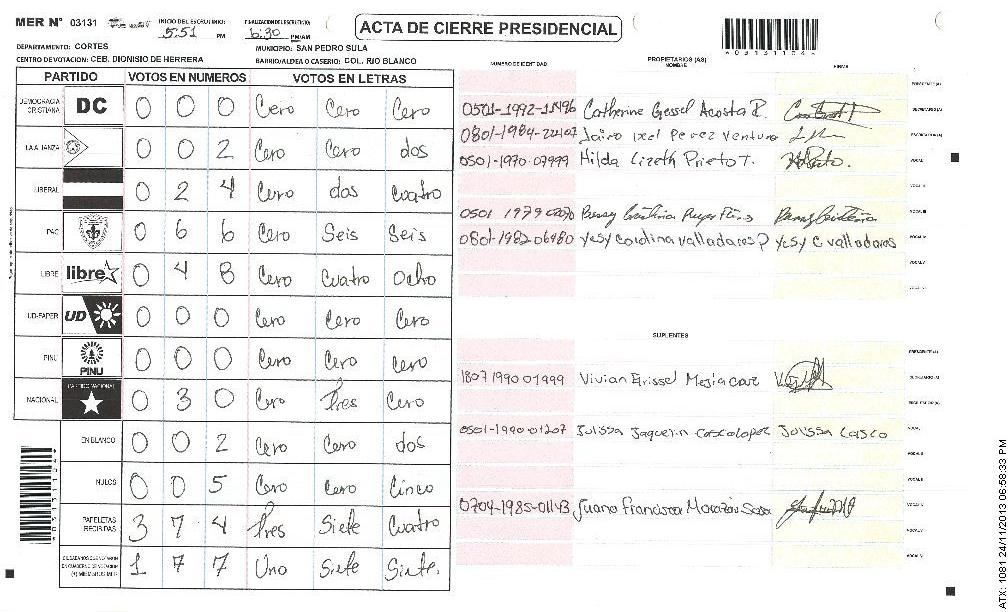 MER N° 03131
INICIO DEL ESCRUTINIO: 5:51 PM
FINALIZACION DEL ESCRUTINIO: 6:30 PM/AM
ACTA DE CIERRE PRESIDENCIAL
DEPARTAMENTO: CORTES
MUNICIPIO: SAN PEDRO SULA
CENTRO DE VOTACION: CEB. DIONISIO DE HERRERA
BARRIO/ALDEA O CASERIO: COL. RIO BLANCO
NUMERO DE IDENTIDAD
PROPIETARIOS (AS)
NOMBRE
FIRMA
PARTIDO VOTOS EN NUMEROS VOTOS EN LETRAS
DEMOCRACIA CRISTIANA DC 0 0 0 Cero Cero Cero
LA ALIANZA 0 0 2 Cero Cero dos
LIBERAL 0 2 4 Cero dos Cuatro
PAC 0 6 6 Cero Seis Seis
LIBRE libre 0 4 8 Cero Cuatro Ocho
UD-FAPER UD 0 0 0 Cero Cero Cero
PINU PINU 0 0 0 Cero Cero Cero
NACIONAL PARTIDO NACIONAL 0 3 0 Cero Tres Cero
EN BLANCO 0 0 2 Cero Cero dos
NULOS 0 0 5 Cero Cero Cinco
PAPELETAS RECIBIDAS 3 7 4 Tres Siete Cuatro
1 7 7 Uno Siete Siete.
PRESIDENTE (A)
Catherine Gessel Acosta R. SECRETARIO (A)
Jairo Ixel Perez Ventura ESCRUTADOR (A)
0501-1970-07999 Hilda Lizeth Prieto T. VOCAL I
VOCAL II
0501 1979 VOCAL III
0801-1982-06980 Yesy Carolina Valladares P Yesy C Valladares VOCAL IV
VOCAL V
VOCAL VI
SUPLENTES
PRESIDENTE (A)
1807 1990 01999 Vivian Grissel Mejia Cruz SECRETARIO (A)
ESCRUTADOR (A)
0501-1990-01207 Julissa Jaquelin Casco Lopez Julissa Casco VOCAL I
VOCAL II
VOCAL III
0704-1985-01143 Juana Francisca Morazan Sosa VOCAL IV
VOCAL V
VOCAL VI
ATX: 1081 24/11/2013 06:58:33 PM